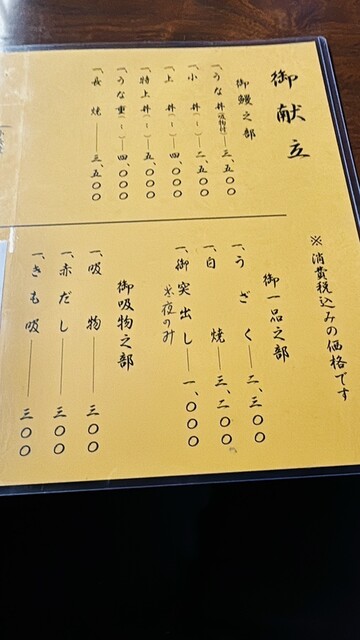 御献立
御鰻之部
一、うな丼(吸物付)―三、五〇〇
一、小丼(〃)―二、五〇〇
一、上丼(〃)―四、〇〇〇
一、特上丼(〃)―五、〇〇〇
一、うな重(〃)―四、〇〇〇
一、長焼―三、五〇〇
※消費税込みの価格です
御一品之部
一、うざく―二、三〇〇
一、白焼―三、二〇〇
一、御突出し―一、〇〇〇
※夜のみ
御吸物之部
一、吸物―三〇〇
一、赤だし―三〇〇
一、きも吸―三〇〇